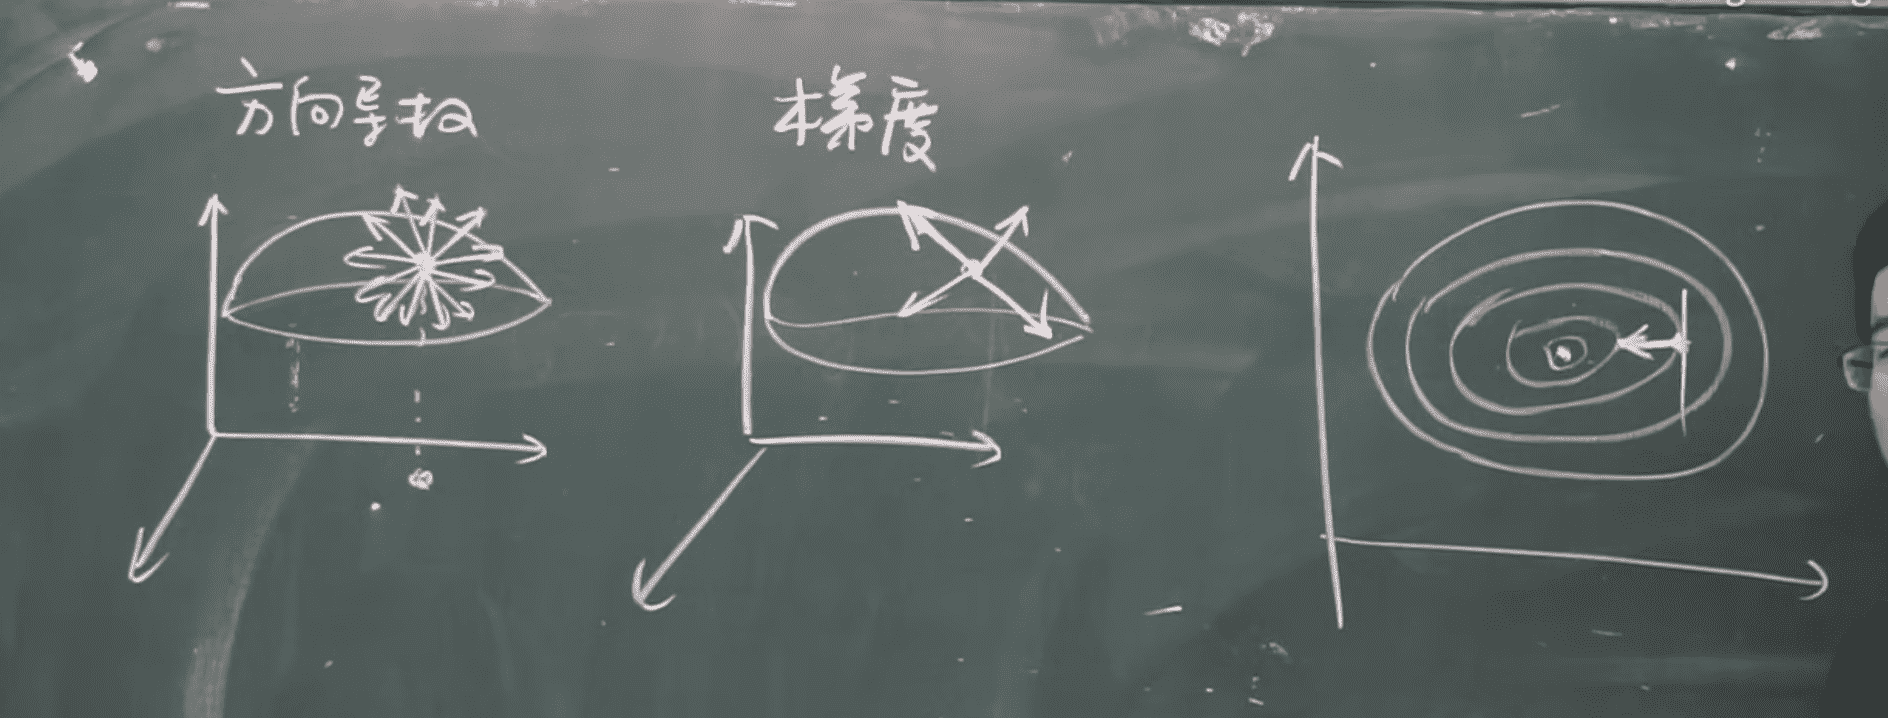 方向导数
梯度